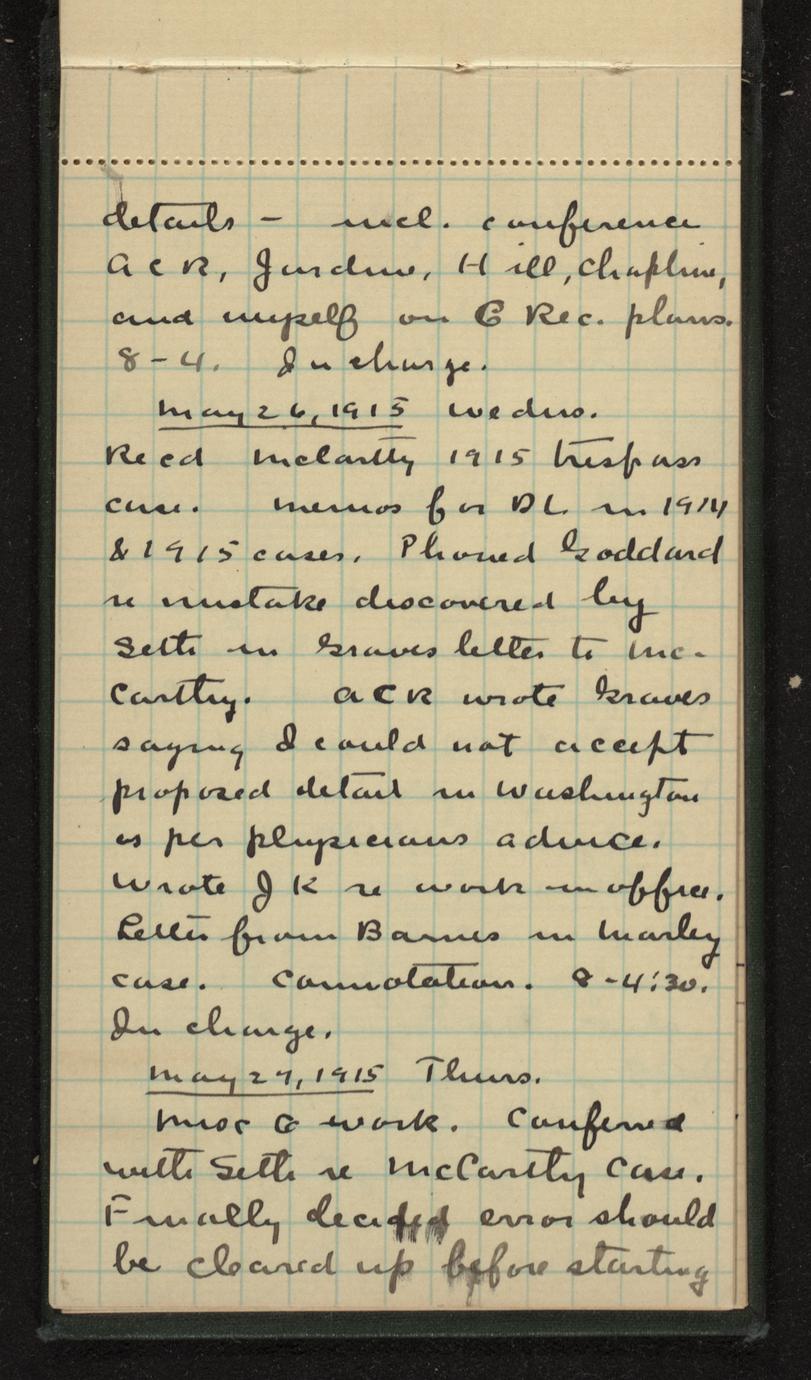 details - incl. conference
ACR, Jardine, Hill, Chapline,
and myself on G Rec. plans.
8-4. In charge.
May 26, 1915 Weds.
Recd McCarthy 1915 trespass
case. Memos for DL in 1914
& 1915 cases. Phoned Goddard
re mistake discovered by
Seth in Graves letter to Mc-
Carthy. ACR wrote Graves
saying I could not accept
proposed detail in Washington
as per physicians advice.
Wrote JK re work in office.
Letter from Barnes in Marley
case. Connotation. 8-4:30.
In charge.
May 27, 1915 Thurs.
Misc G work. Conferred
with Seth re McCarthy case.
Finally decided error should
be cleared up before starting